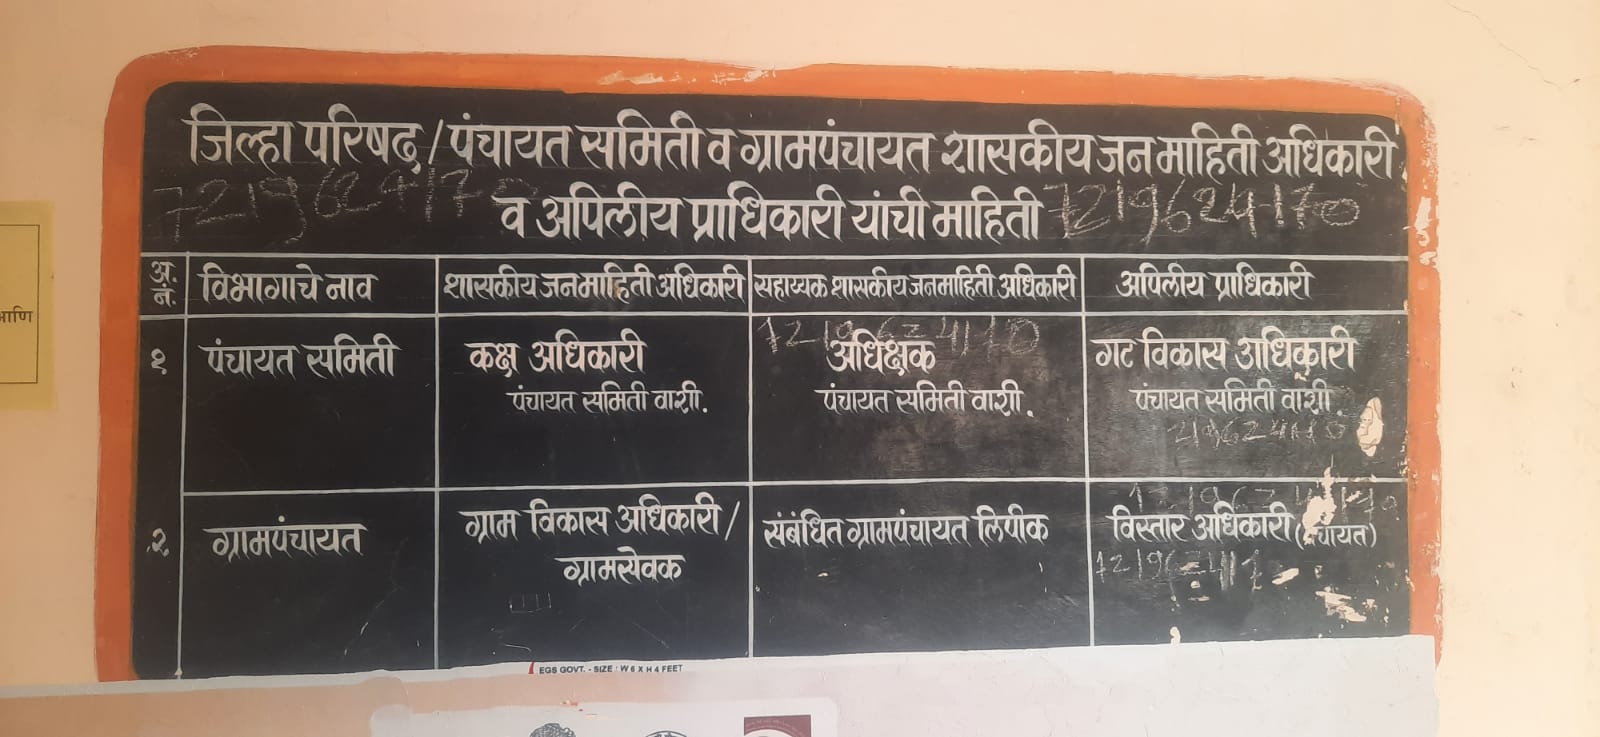 जिल्हा परिषद / पंचायत समिती व ग्रामपंचायत शासकीय जन माहिती अधिकारी
व अपिलीय प्राधिकारी यांची माहिती
7219624170
7219624170
अ.नं.
विभागाचे नाव
शासकीय जनमाहिती अधिकारी
सहाय्यक शासकीय जनमाहिती अधिकारी
अपिलीय प्राधिकारी
१
पंचायत समिती
कक्ष अधिकारी
पंचायत समिती वाशी.
7219624170
अधिक्षक
पंचायत समिती वाशी.
गट विकास अधिकारी
पंचायत समिती वाशी.
२
ग्रामपंचायत
ग्राम विकास अधिकारी /
ग्रामसेवक
संबंधित ग्रामपंचायत लिपीक
विस्तार अधिकारी (पंचायत)
EGS GOVT. - SIZE : W 6 X H 4 FEET
आणि